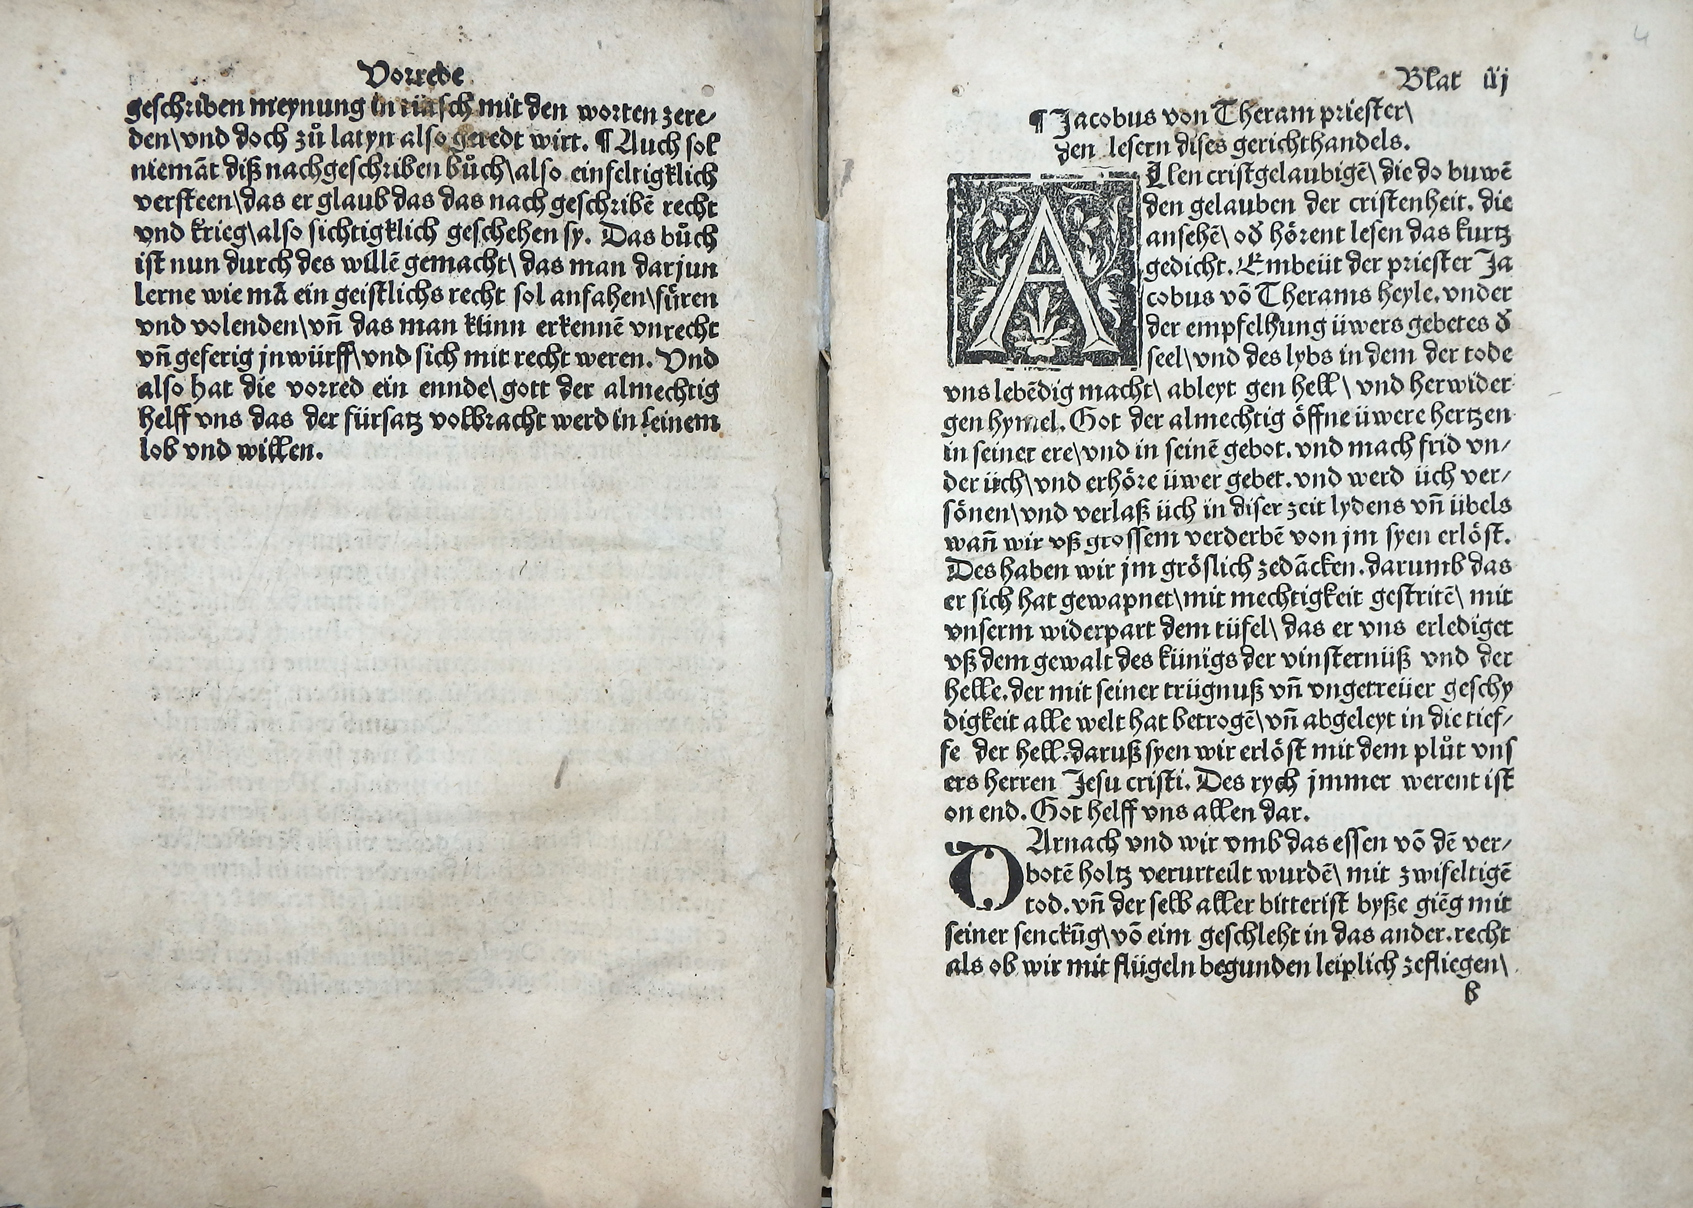 Vorrede
geschriben meynung in tütsch mit den worten zere-
den\vnd doch zů latyn also geredt wirt. ¶ Auch sol
niemāt diß nachgeschriben bůch\also einfeltigklich
versteen\das er glaub das das nach geschribē recht
vnd krieg\also sichtigklich geschehen sy. Das bůch
ist nun durch des willē gemacht\das man darjun
lerne wie mā ein geistlichs recht sol anfahen\füren
vnd volenden\vn̄ das man künn erkennē vnrecht
vn̄ geferig jnwürff\vnd sich mit recht weren. Vnd
also hat die vorred ein ennde\gott der almechtig
helff vns das der fürsatz volbracht werd in seinem
lob vnd willen.
Blat iij
¶ Jacobus von Theram priester\
den lesern dises gerichthandels.
ALlen cristgelaubigē\die do buwē
den gelauben der cristenheit. die
ansehē\oď hörent lesen das kurtz
gedicht. Embeüt der priester Ja
cobus vō Therams heyle. vnder
der empfelhung üwers gebetes ď
seel\vnd des lybs in dem der tode
vns lebēdig macht\ableyt gen hell\vnd herwider
gen hymel. Got der almechtig öffne üwere hertzen
in seiner ere\vnd in seinē gebot. vnd mach frid vn-
der üch\vnd erhöre üwer gebet. vnd werd üch ver-
sönen\vnd verlaß üch in diser zeit lydens vn̄ übels
wan̄ wir vß grossem verderbē von jm syen erlöst.
Des haben wir jm gröslich zedācken. darumb das
er sich hat gewapnet\mit mechtigkeit gestritē\mit
vnserm widerpart dem tüfel\das er vns erlediget
vß dem gewalt des künigs der vinsternüß vnd der
helle. der mit seiner trügnuß vn̄ vngetreüer geschy
digkeit alle welt hat betrogē\vn̄ abgeleyt in die tief-
fe der hell. daruß syen wir erlöst mit dem plůt vns
ers herren Jesu cristi. Des rych jmmer werent ist
on end. Got helff vns allen dar.
DArnach vnd wir vmb das essen vō dē ver-
botē holtz verurteilt wurdē\mit zwifeltigē
tod. vn̄ der selb aller bitterist byße giēg mit
seiner senckūg\vō eim geschleht in das ander. recht
als ob wir mit flügeln begunden leiplich zefliegen\
b
4